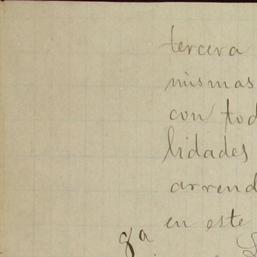 tercera
mismas
con tod
lidades
arrend
en este
8a